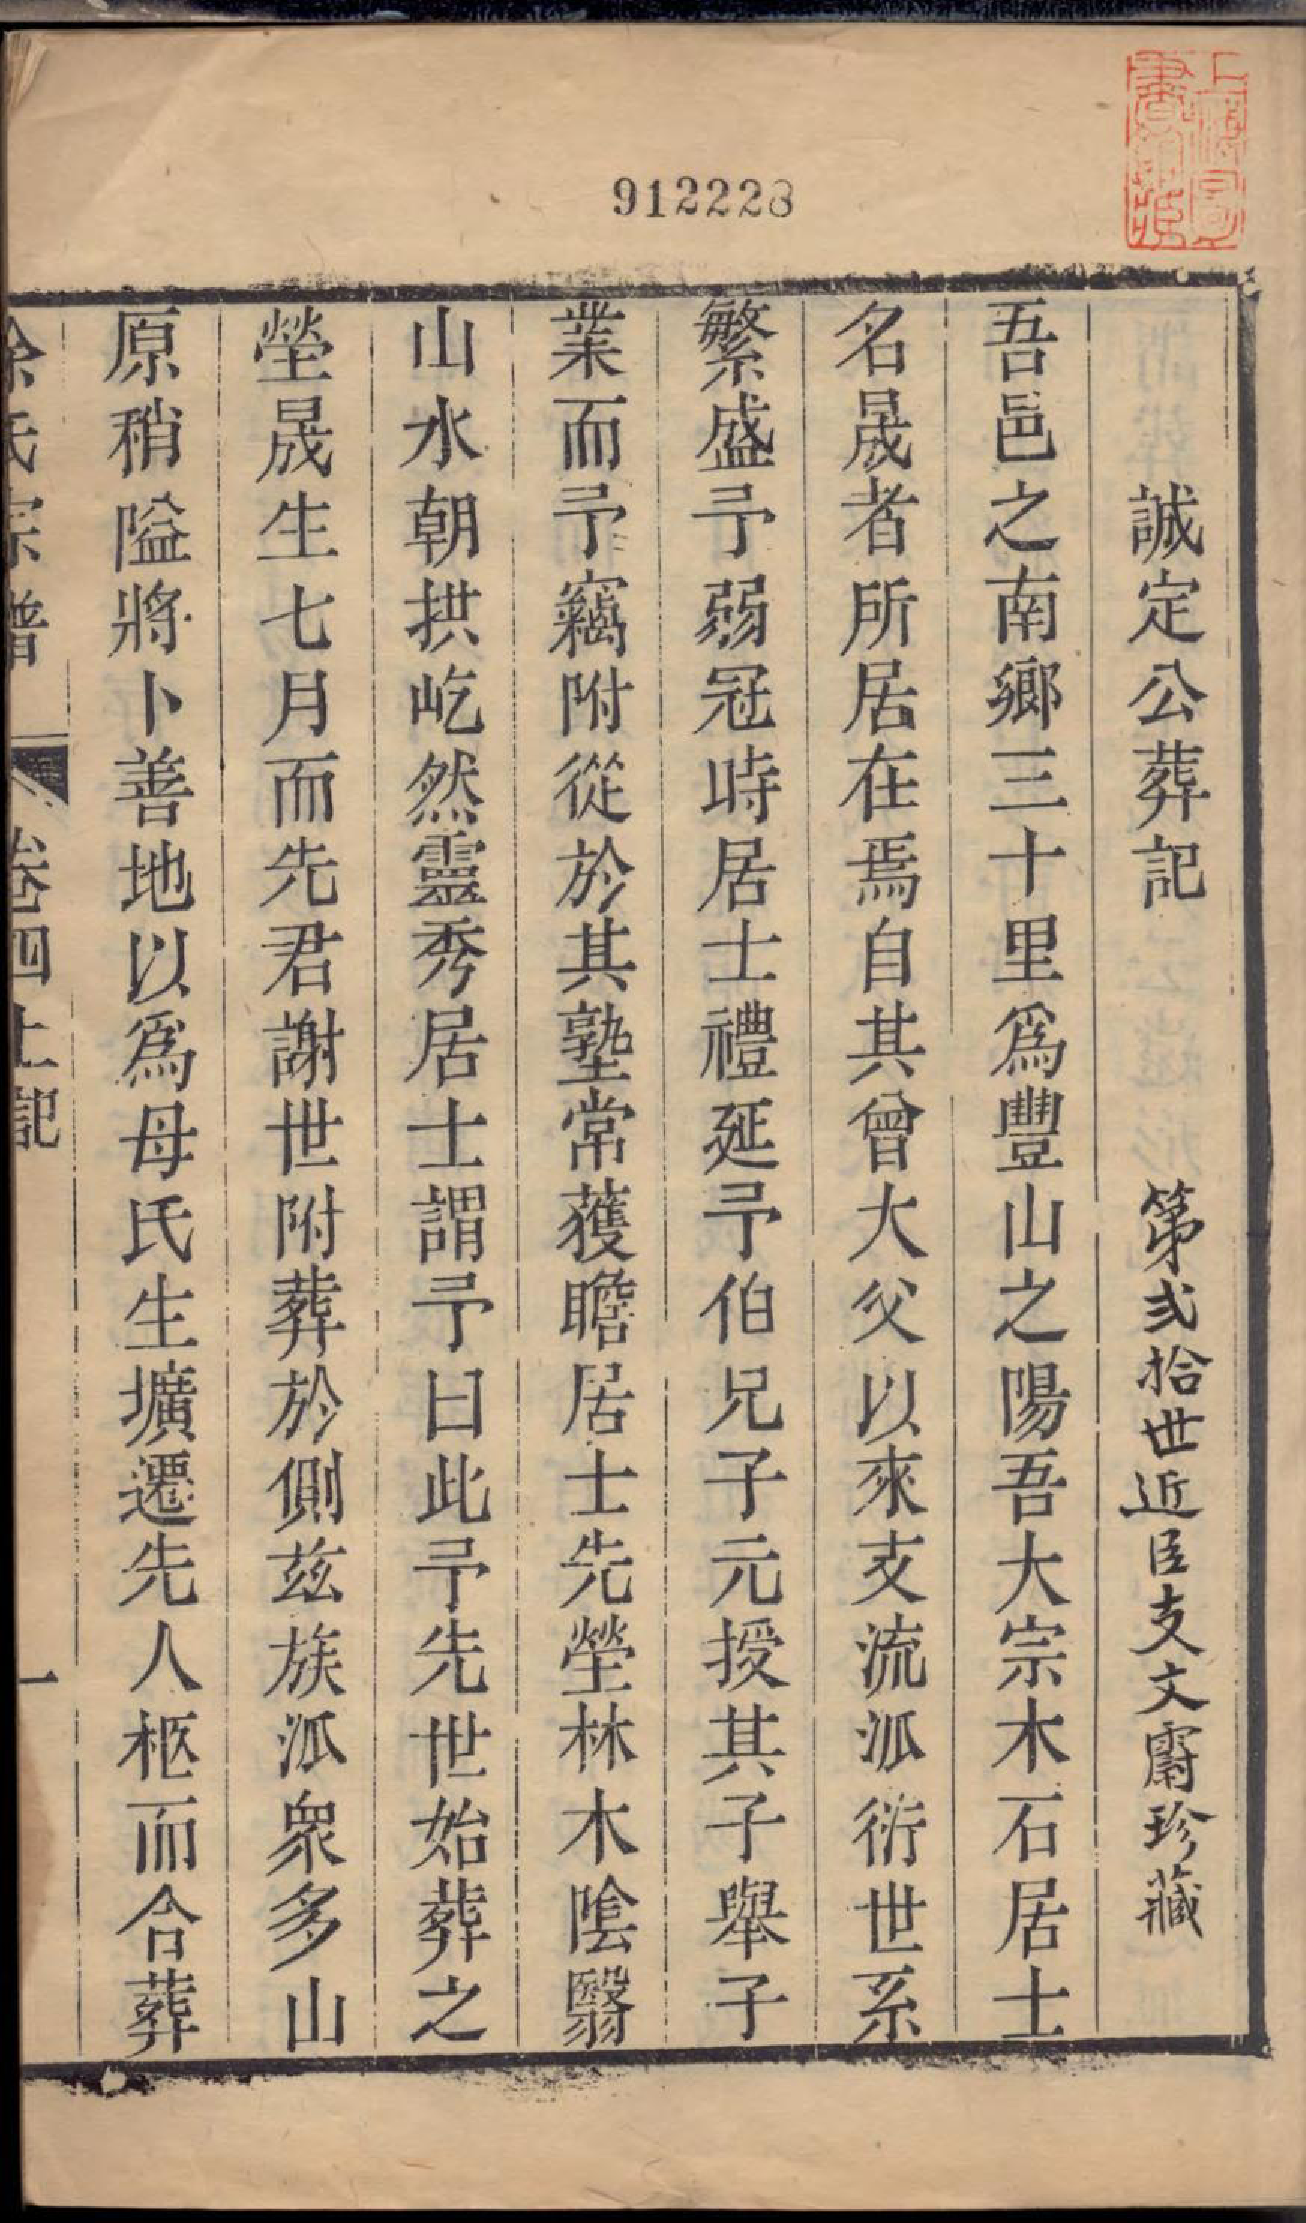 912228
上海圖書館藏
誠定公葬記
第弍拾世近臣支文霨珍藏
吾邑之南鄉三十里為豐山之陽吾大宗木石居士
名晟者所居在焉自其曾大父以來支流泒衍世系
繁盛予弱冠時居士禮延予伯兄子元授其子舉子
業而予竊附從於其塾常獲瞻居士先塋林木陰翳
山水朝拱屹然靈秀居士謂予曰此予先世始葬之
塋晟生七月而先君謝世附葬於側茲族泒衆多山
原稍隘將卜善地以為母氏生壙遷先人柩而合葬
余氏宗譜 卷四上記 一